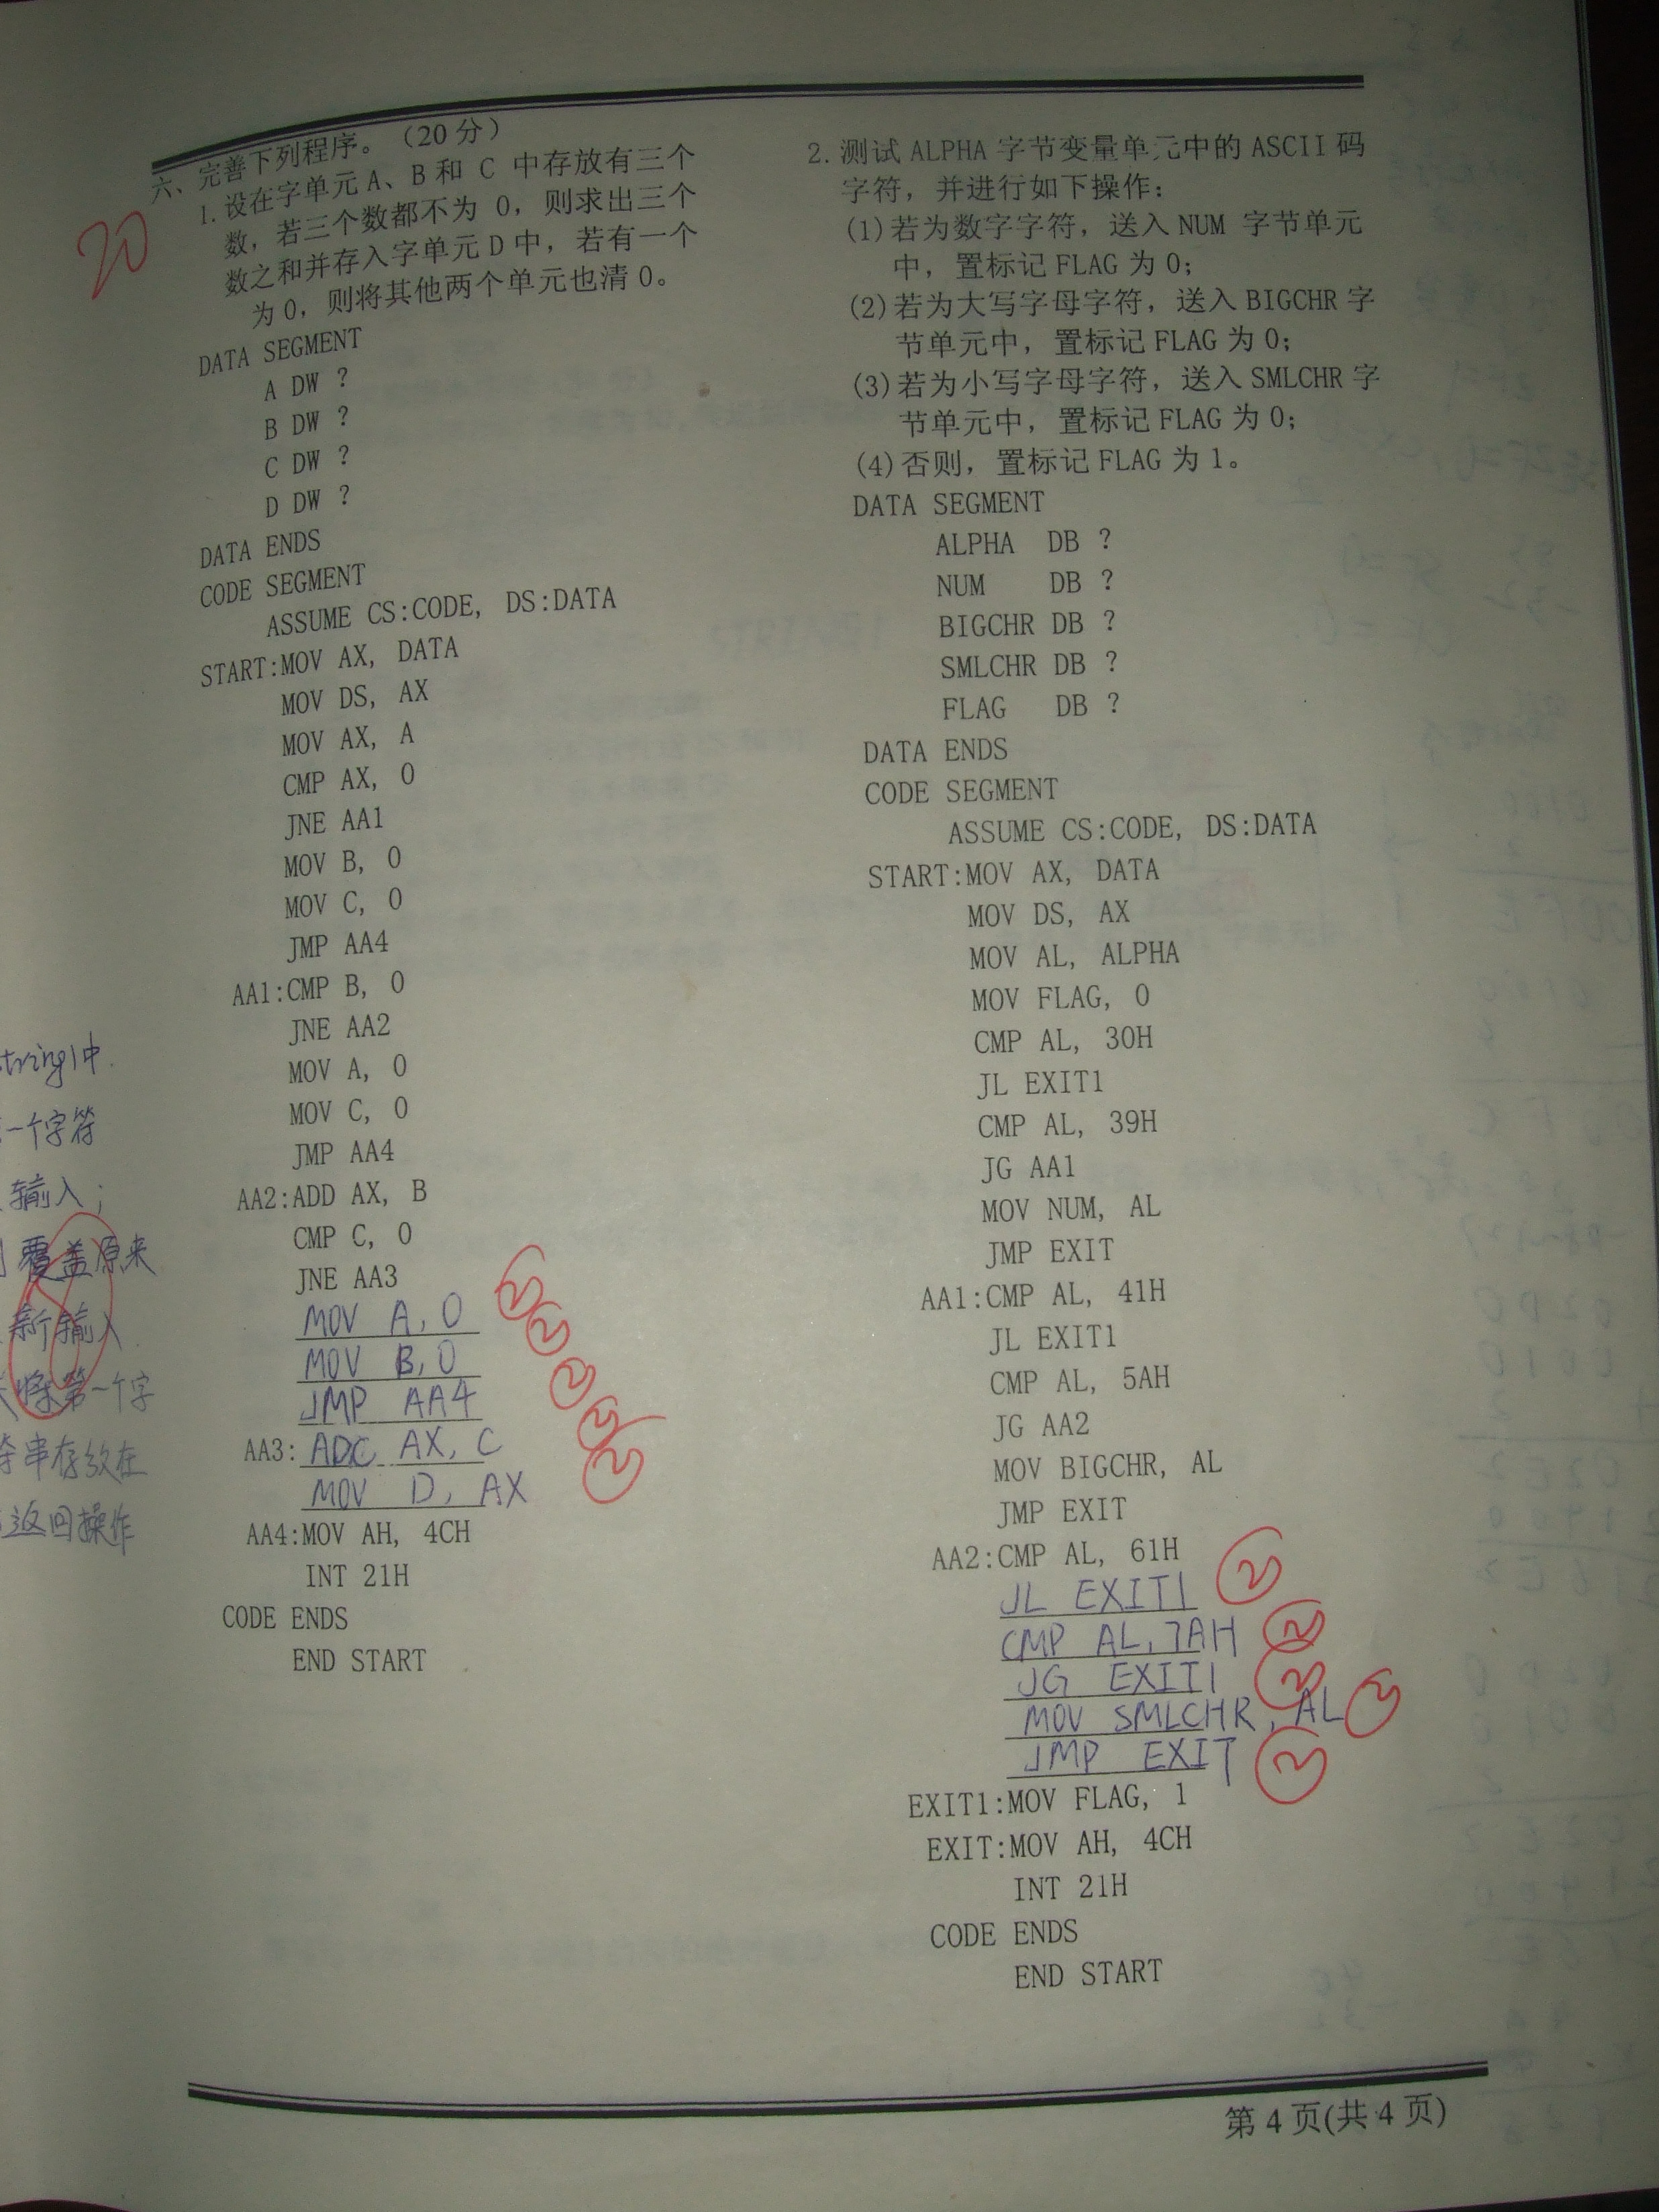 六、完善下列程序。（20分）
20
1. 设在字单元 A、B 和 C 中存放有三个
数，若三个数都不为 0，则求出三个
数之和并存入字单元 D 中，若有一个
为 0，则将其他两个单元也清 0。
DATA SEGMENT
A DW ?
B DW ?
C DW ?
D DW ?
DATA ENDS
CODE SEGMENT
ASSUME CS:CODE, DS:DATA
START:MOV AX, DATA
MOV DS, AX
MOV AX, A
CMP AX, 0
JNE AA1
MOV B, 0
MOV C, 0
JMP AA4
AA1:CMP B, 0
JNE AA2
MOV A, 0
MOV C, 0
JMP AA4
AA2:ADD AX, B
CMP C, 0
JNE AA3
MOV A, 0 ②
MOV B, 0 ②
JMP AA4 ②
AA3: ADC AX, C ②
MOV D, AX ②
AA4:MOV AH, 4CH
INT 21H
CODE ENDS
END START
tring1中.
一个字符
输入;
覆盖原来
新输入
将第一个字
符串存放在
返回操作
2. 测试 ALPHA 字节变量单元中的 ASCII 码
字符，并进行如下操作：
(1)若为数字字符，送入 NUM 字节单元
中，置标记 FLAG 为 0；
(2)若为大写字母字符，送入 BIGCHR 字
节单元中，置标记 FLAG 为 0；
(3)若为小写字母字符，送入 SMLCHR 字
节单元中，置标记 FLAG 为 0；
(4)否则，置标记 FLAG 为 1。
DATA SEGMENT
ALPHA DB ?
NUM DB ?
BIGCHR DB ?
SMLCHR DB ?
FLAG DB ?
DATA ENDS
CODE SEGMENT
ASSUME CS:CODE, DS:DATA
START:MOV AX, DATA
MOV DS, AX
MOV AL, ALPHA
MOV FLAG, 0
CMP AL, 30H
JL EXIT1
CMP AL, 39H
JG AA1
MOV NUM, AL
JMP EXIT
AA1:CMP AL, 41H
JL EXIT1
CMP AL, 5AH
JG AA2
MOV BIGCHR, AL
JMP EXIT
AA2:CMP AL, 61H
JL EXIT1 ②
CMP AL, 7AH ②
JG EXIT1 ②
MOV SMLCHR, AL ②
JMP EXIT ②
EXIT1:MOV FLAG, 1
EXIT:MOV AH, 4CH
INT 21H
CODE ENDS
END START
第 4 页(共 4 页)